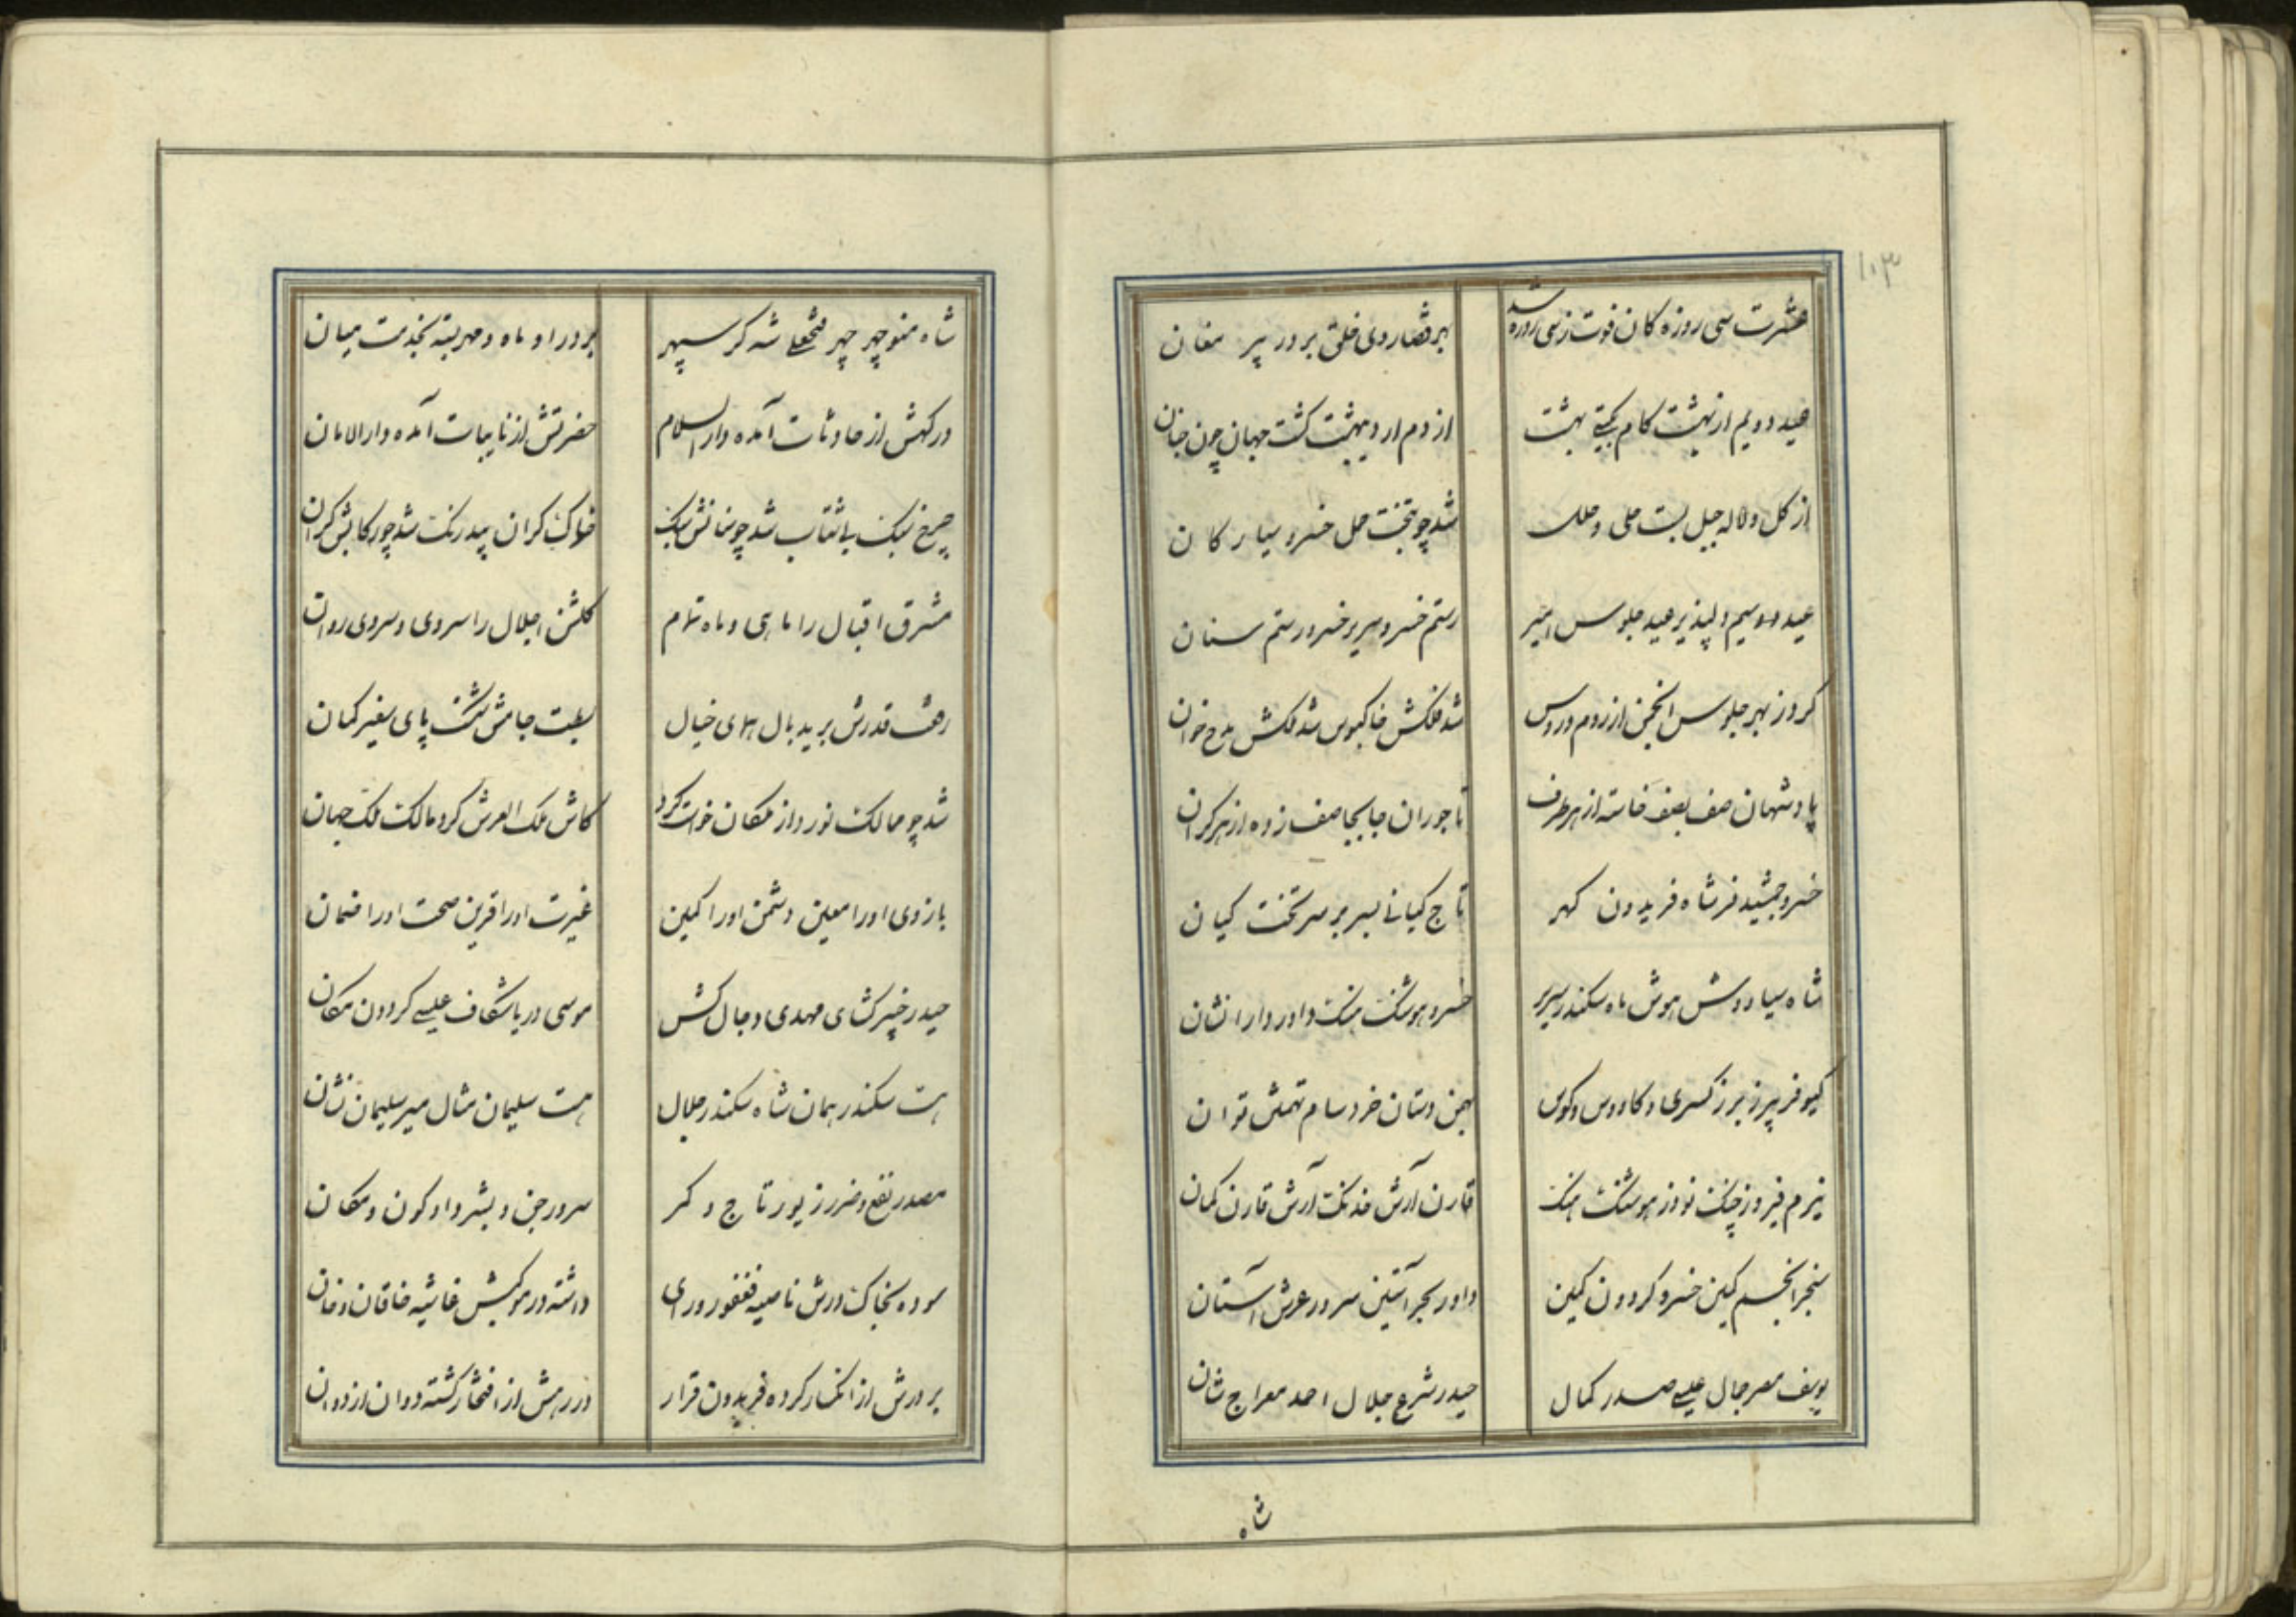 ۱۰۳
عشرت سی روزه کان فوت ز سی روزه شد
بر قضا روی خلق بر در پیر مغان
عید دویم از بهشت کام بگیتی بهشت
از دم اردیبهشت گشت جهان چون جنان
از کل و لاله جبل بست حلی و حلل
شد چو بتخت حمل خسرو سیارکان
عید سیم دلپذیر عید جلوس امیر
رستم خسرو سریر خسرو رستم سنان
کروز بهر جلوس انجمن از روم و روس
شد فلکش خاکبوس شد ملکش مدح خوان
پادشهان صف بصف خاسته از هر طرف
تاجوران جابجا صف زده از هر کران
خسرو جمشید فر شاه فریدون کهر
تاج کیانی بسر بر سر تخت کیان
شاه سیاوش هوش ماه سکندر سریر
خسرو هوشنک هنک داور دارا نشان
کیو فر پیرز برز کسری و کاووس و کوس
بهمن دستان خرد سام تهمتن توان
نیرم فیروز چنک نوذر هوشنک هنک
قارن آرش خدنک آرش قارن کمان
سنجر انجم نکین خسرو کردون مکین
داور بحر آستین سرور عرش آستان
یوسف مصر جمال عیسی صدر کمال
حیدر شرع جلال احمد معراج شان
شاه
شاه منوچهر چهر فتحعلی شه کز سپهر
بر در او ماه و مهر بسته بخدمت میان
درکهش از حادثات آمده دار السلام
حضرتش از نایبات آمده دار الامان
چرخ سبک باشتاب شد چو عنانش سبک
خاک کران بیدرنک شد چو رکابش کران
مشرق اقبال را ماهی و ماه تمام
کلشن اجلال را سروی و سروی روان
رفت قدرش برید بال همای خیال
بست جاهش شکست پای سفیر کمان
شد چو ممالک نورد از ملکان خواست کرد
کاش ملک العرش کرد مالک ملک جهان
بازوی او را معین دشمن او را کمین
غیرت او را قرین صحت او را ضمان
حیدر خیبر کشای مهدی دجال کش
موسی دریا شکاف عیسی کردون مکان
هست سکندر همان شاه سکندر جلال
هست سلیمان مثال میر سلیمان نشان
مصدر نفع و ضرر زیور تاج و کمر
سرور جن و بشر داور کون و مکان
سوده بخاک درش ناصیه فغفور و رای
داشته در موکبش غاشیه خاقان و خان
بر درش از انکسار کرده فریدون قرار
در رهش از افتخار کشته دوان اردوان